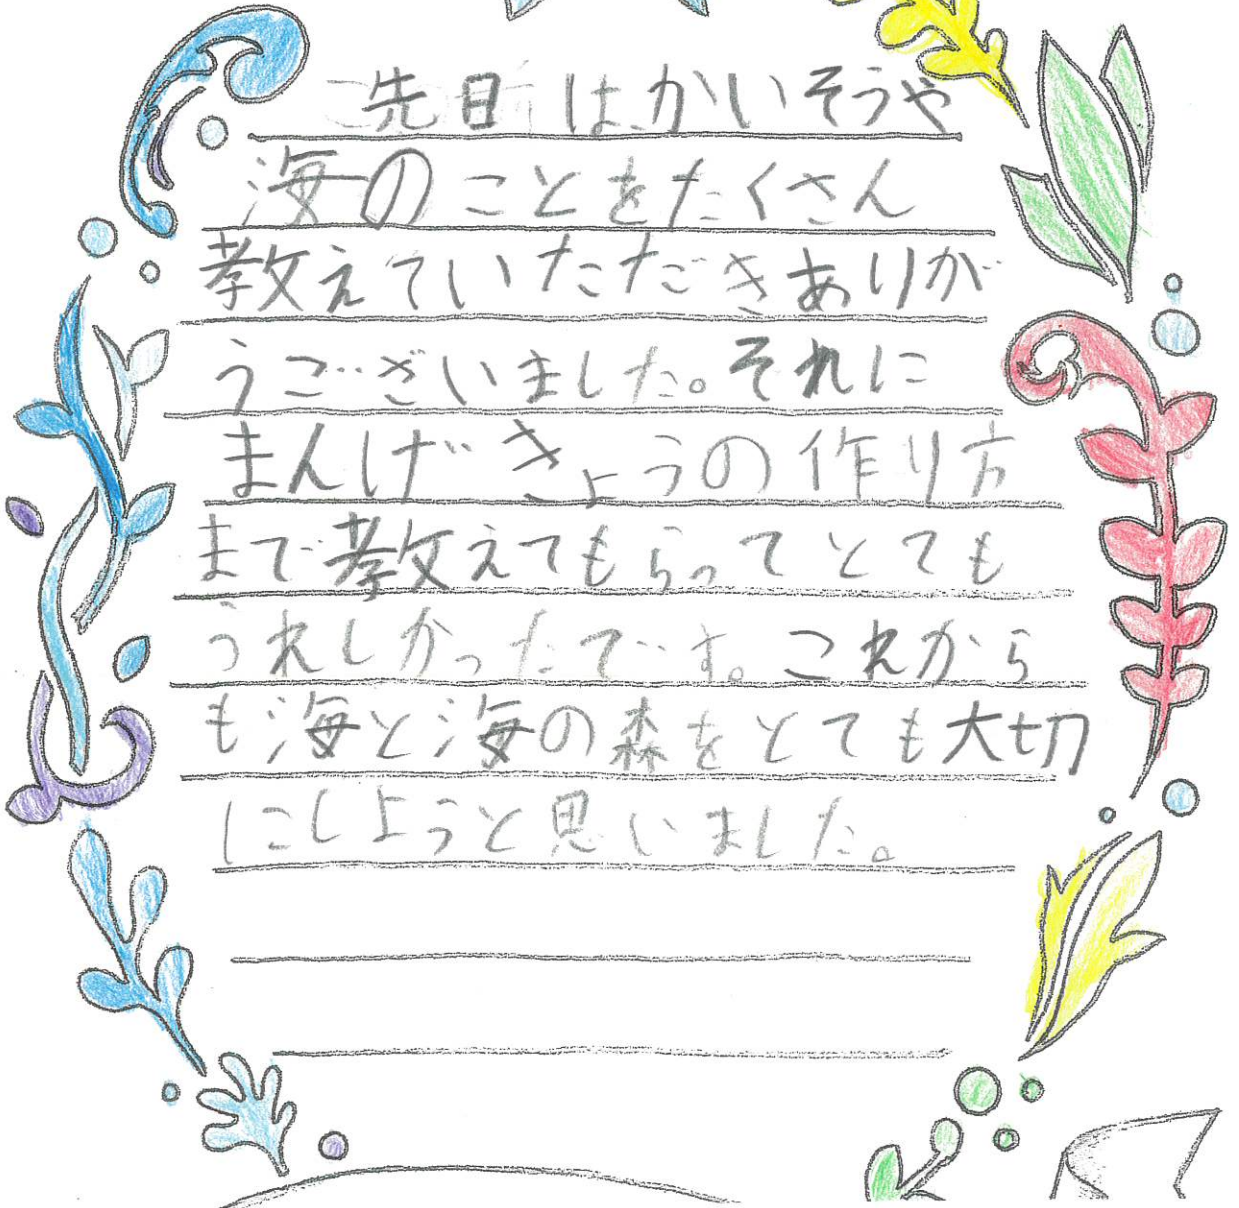 先日はかいそうや
海のことをたくさん
教えていただきありが
うございました。それに
まんげきょうの作り方
まで教えてもらってとても
うれしかったです。これから
も海と海の森をとても大切
にしようと思いました。